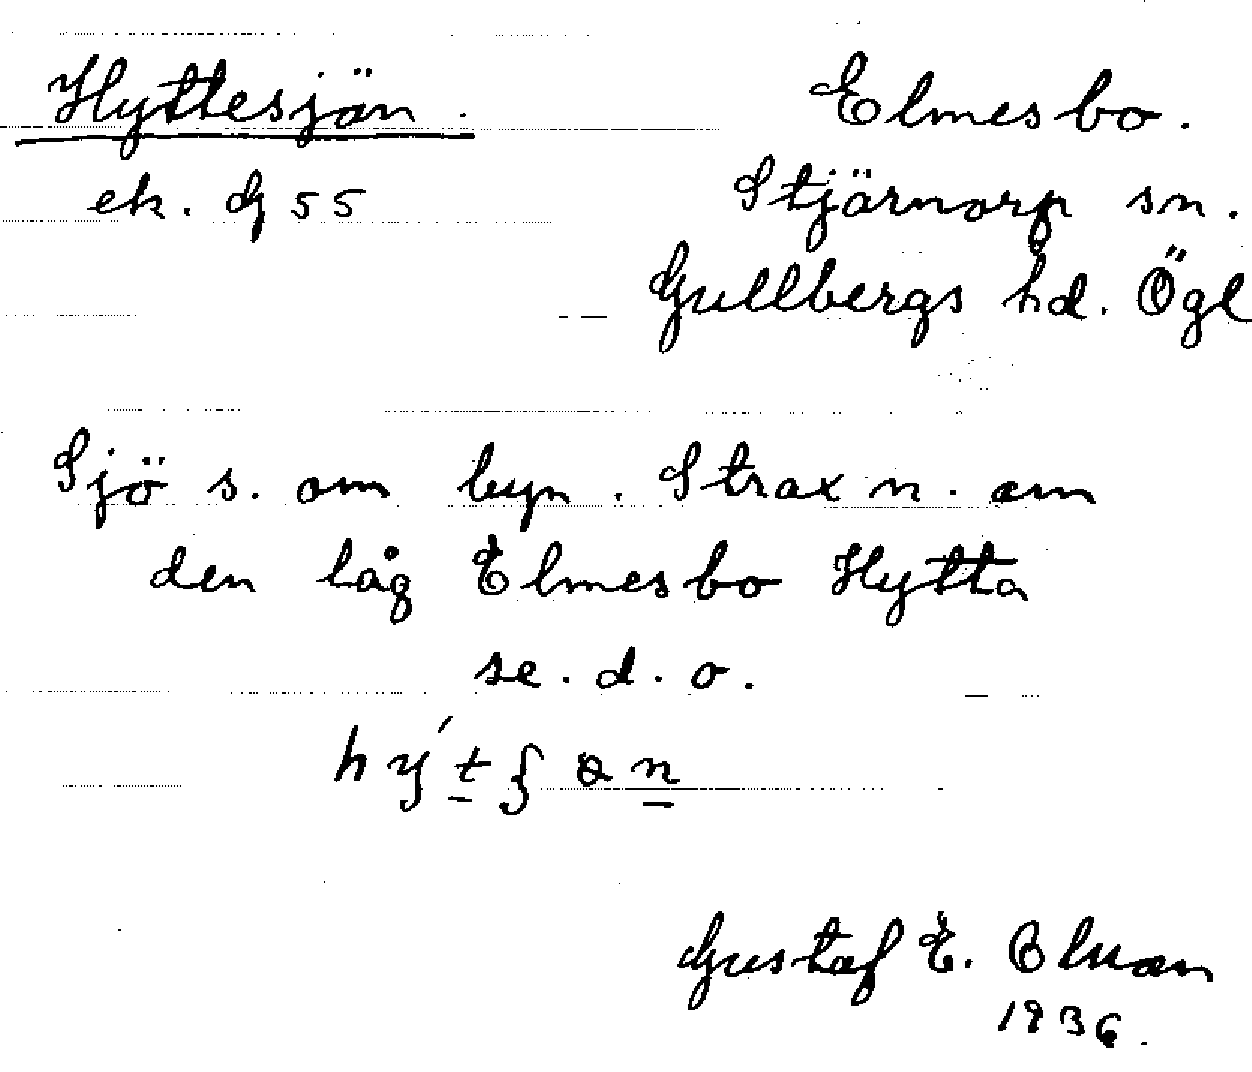 Hyttesjön.
Elmesbo.
ek. G 55
Stjärnorp sn.
Gullbergs hd. Ögl
Sjö s. om byn. Strax n. om
den låg Elmesbo Hytta
se. d. o.
Gustaf E.
1936.